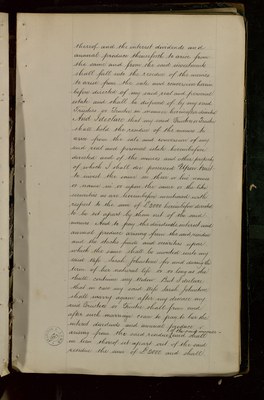 thereof and the interest dividends and
annual produce thenceforth to arise from
the same and from the said investments
shall fall into the residue of the monies
to arise from the sale and conversion herein
before directed of my said real and personal
estate and shall be disposed of by my said
Trustees or Trustee in manner hereinafter directed
And I declare that my said Trustees or Trustee
shall hold the residue of the monies to
arise from the sale and conversion of my
said real and personal estate hereinbefore
directed and of the monies and other property
of which I shall die possessed Upon trust
to invest the same in their or his names
or name in or upon the same or the like
securities as are hereinbefore mentioned with
respect to the sum of £2000 hereinbefore directed
to be set apart by them out of the said
monies And to pay the dividends interest and
annual produce arising from the said residue
and the stocks funds and securities upon
which the same shall be invested unto my
said Wife Sarah Johnstone for and during the
term of her natural life if so long as she
shall continue my Widow But I declare
that in case my said Wife Sarah Johnstone
shall marry again after my decease my
said Trustees or Trustee shall from and
after such marriage cease to pay to her the
interest dividends and annual produce
arising from the said residue and shall
in lieu thereof set apart out of the said
residue the sum of £2000 and shall